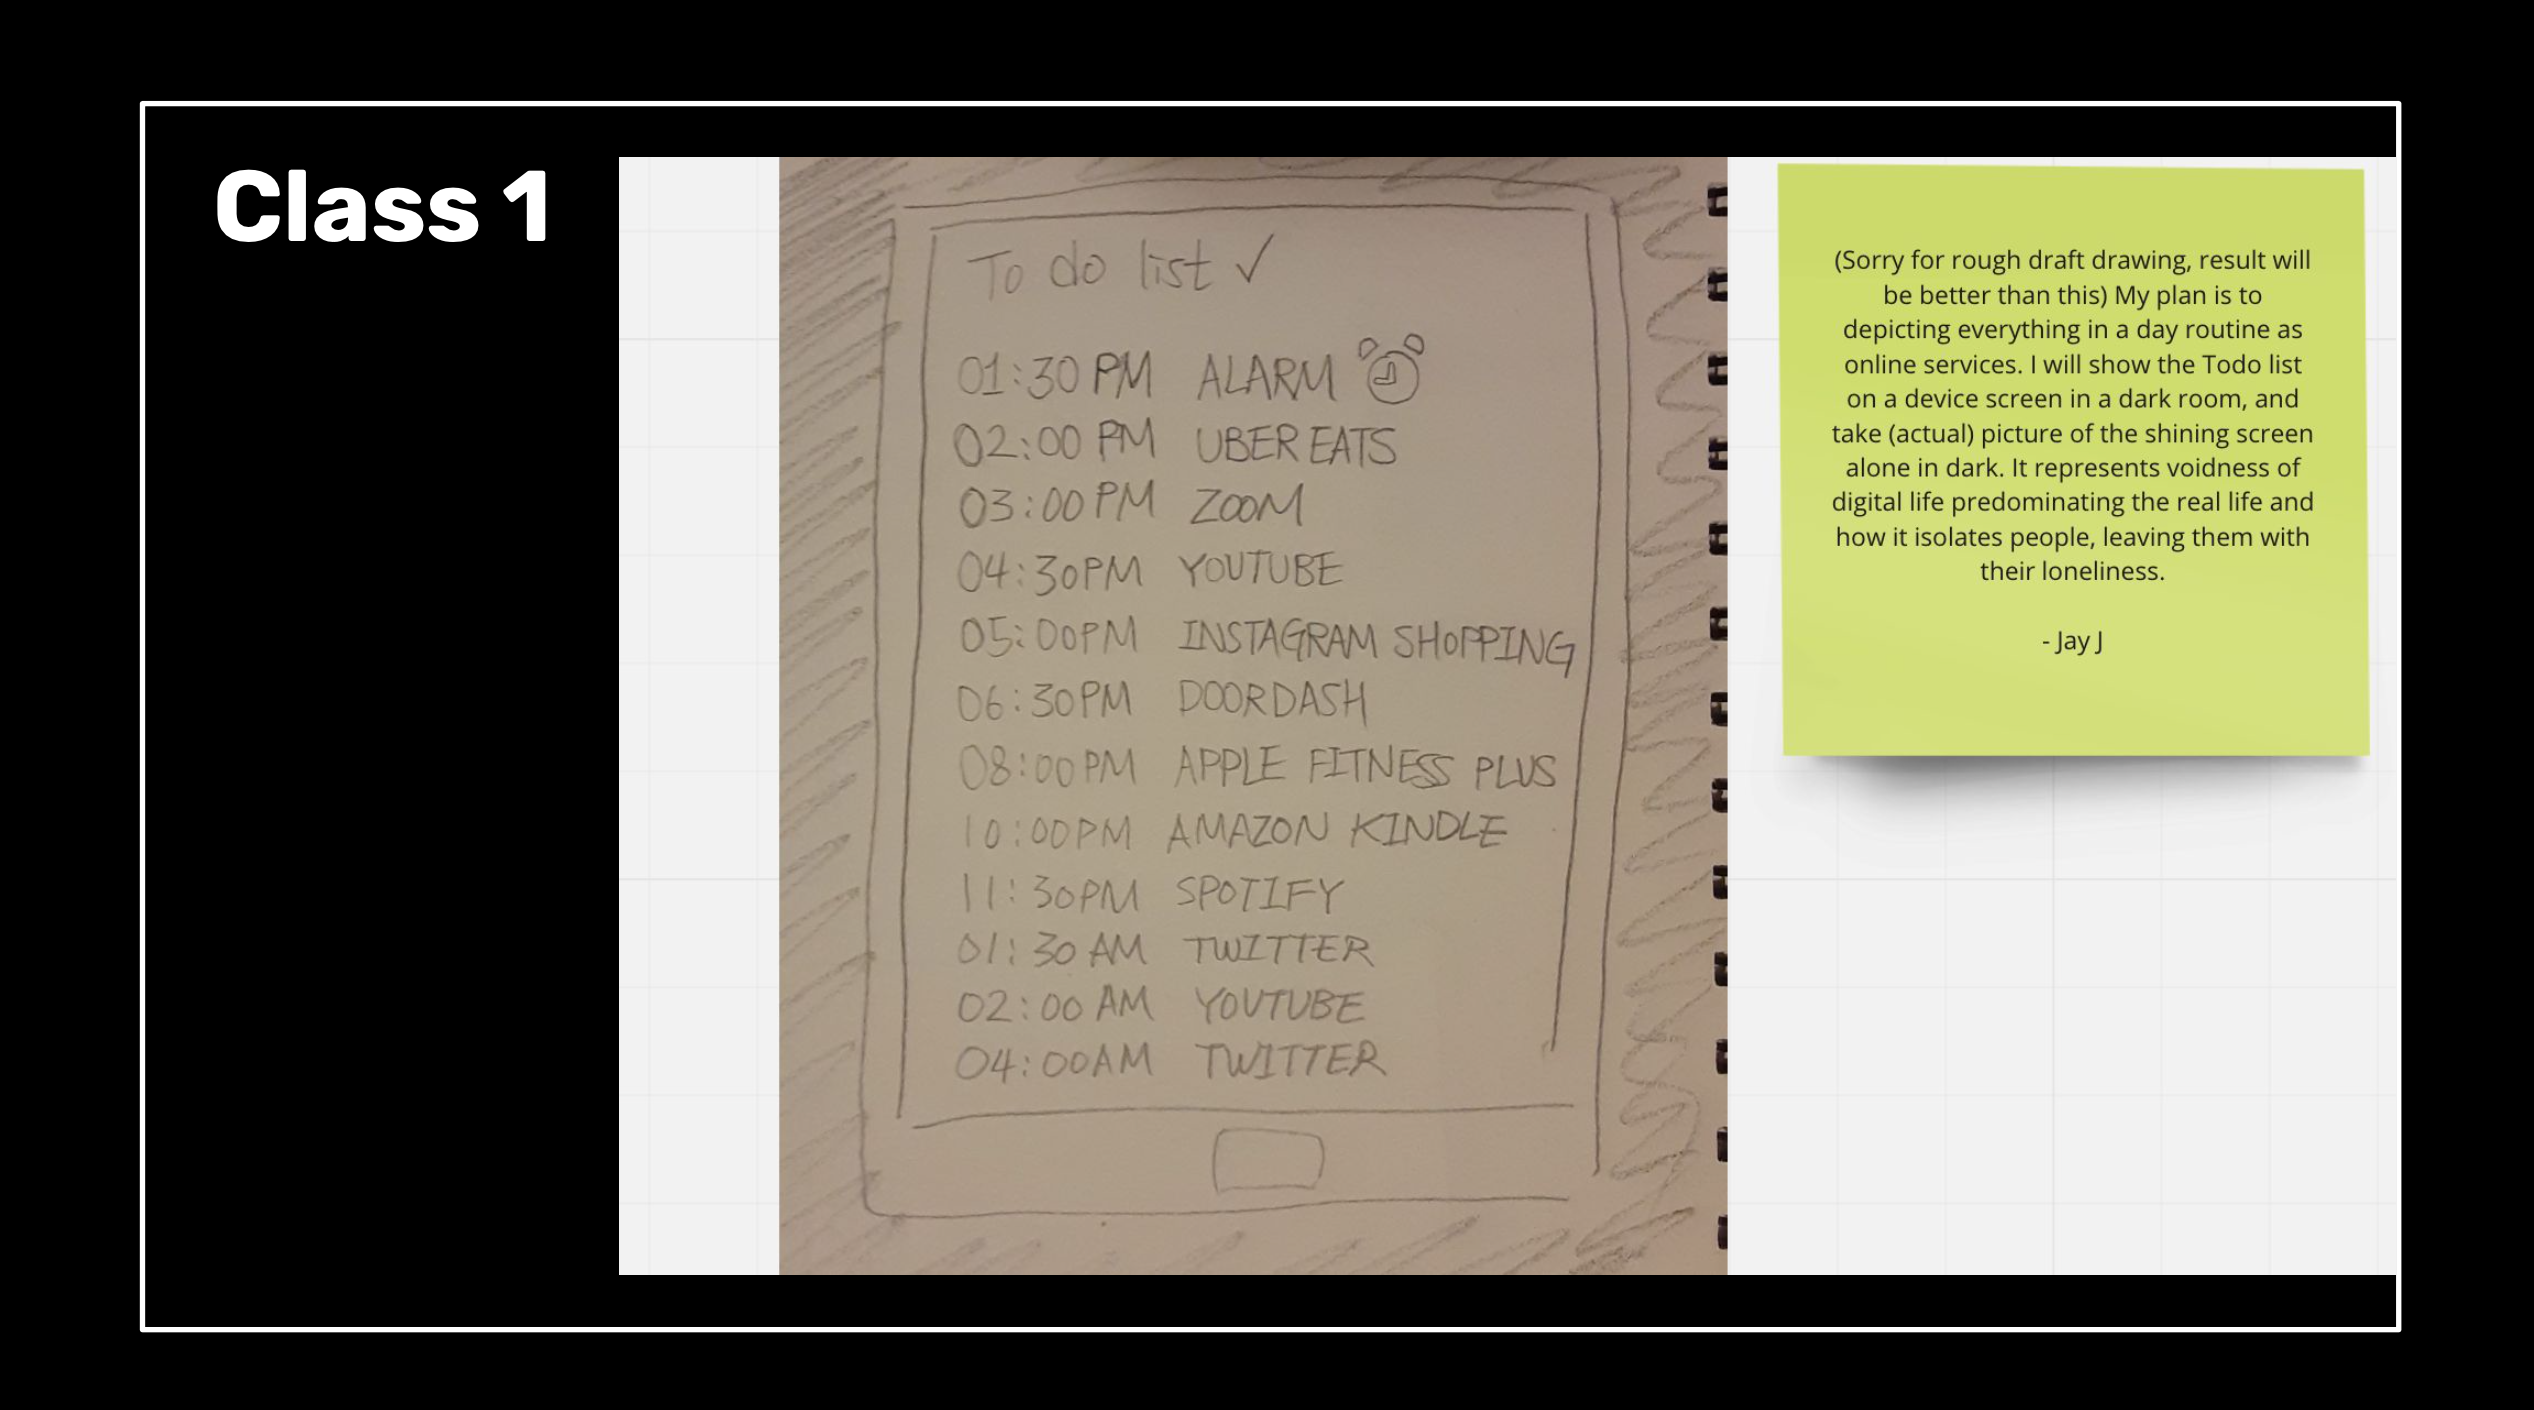 Class 1
To do list ✓
01:30 PM ALARM
02:00 PM UBER EATS
03:00 PM ZOOM
04:30PM YOUTUBE
05:00PM INSTAGRAM SHOPPING
06:30PM DOORDASH
08:00PM APPLE FITNESS PLUS
10:00PM AMAZON KINDLE
11:30PM SPOTIFY
01:30 AM TWITTER
02:00 AM YOUTUBE
04:00AM TWITTER
(Sorry for rough draft drawing, result will
be better than this) My plan is to
depicting everything in a day routine as
online services. I will show the Todo list
on a device screen in a dark room, and
take (actual) picture of the shining screen
alone in dark. It represents voidness of
digital life predominating the real life and
how it isolates people, leaving them with
their loneliness.
- Jay J